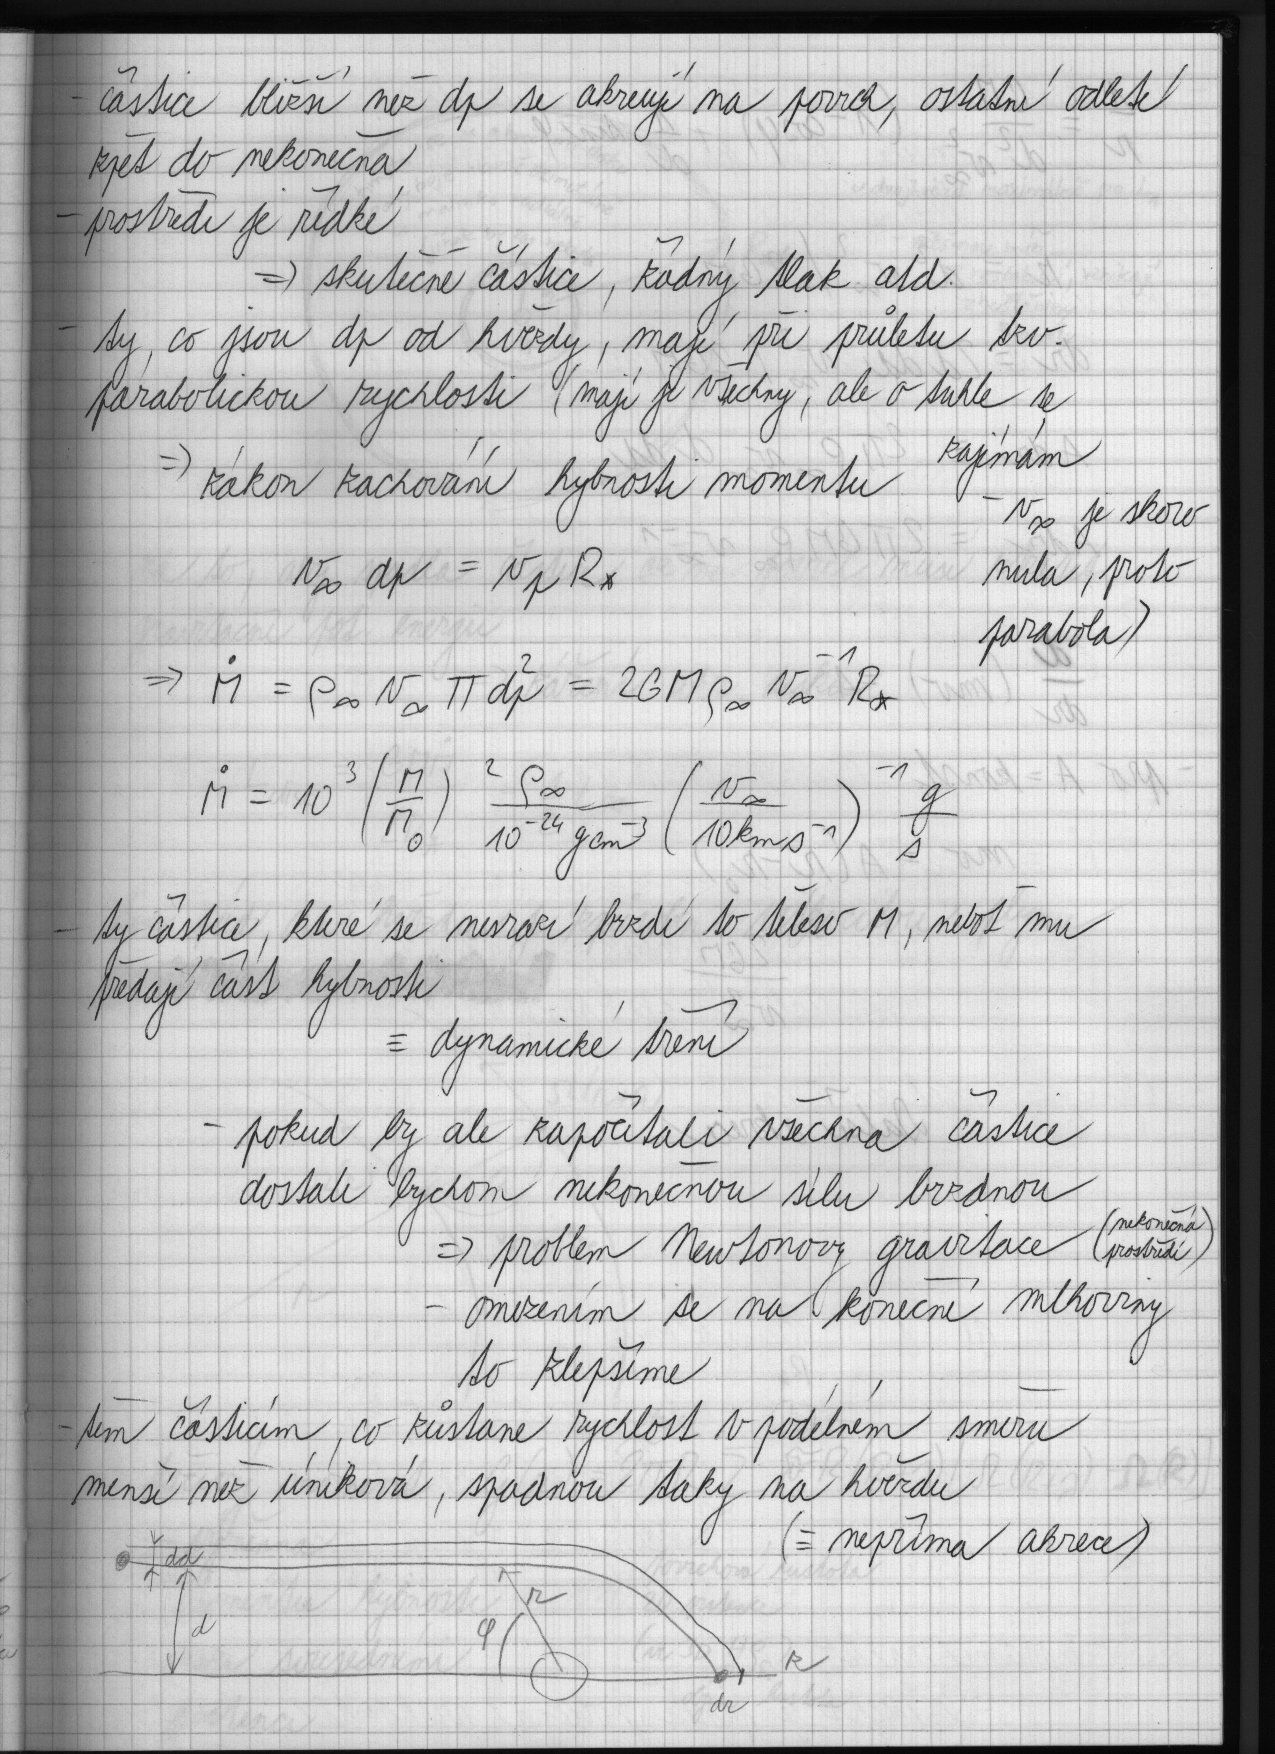 - částice bližší než dp se akreují na povrch, ostatní odletí
zpět do nekonečna
- prostředí je řídké
=> skutečné částice, žádný tlak atd.
- ty, co jsou dp od hvězdy, mají při průletu tzv.
parabolickou rychlost (mají ji všechny, ale o tuhle se
zajímám
=> zákon zachování hybnosti momentu
- v∞ je skoro
nula, proto
parabola)
v∞ dp = vp R*
=> Ṁ = ρ∞ v∞ π dp² = 2GM ρ∞ v∞⁻¹ R*
Ṁ = 10³ (M/M⊙)² ρ∞/(10⁻²⁴ g cm⁻³) (v∞/(10 km s⁻¹))⁻¹ g/s
- ty částice, které se nesrazí brzdí to těleso M, neboť mu
předají část hybnosti
≡ dynamické tření
- pokud by ale započítali všechna částice
dostali bychom nekonečnou sílu brzdnou
=> problém Newtonovy gravitace (nekonečná
prostředí)
- omezením se na konečné mlhoviny
to zlepšíme
- těm částicím, co zůstane rychlost v podélném směru
menší než úniková, spadnou taky na hvězdu
(≡ nepřímá akrece)
dd
d
φ
r
z
dz